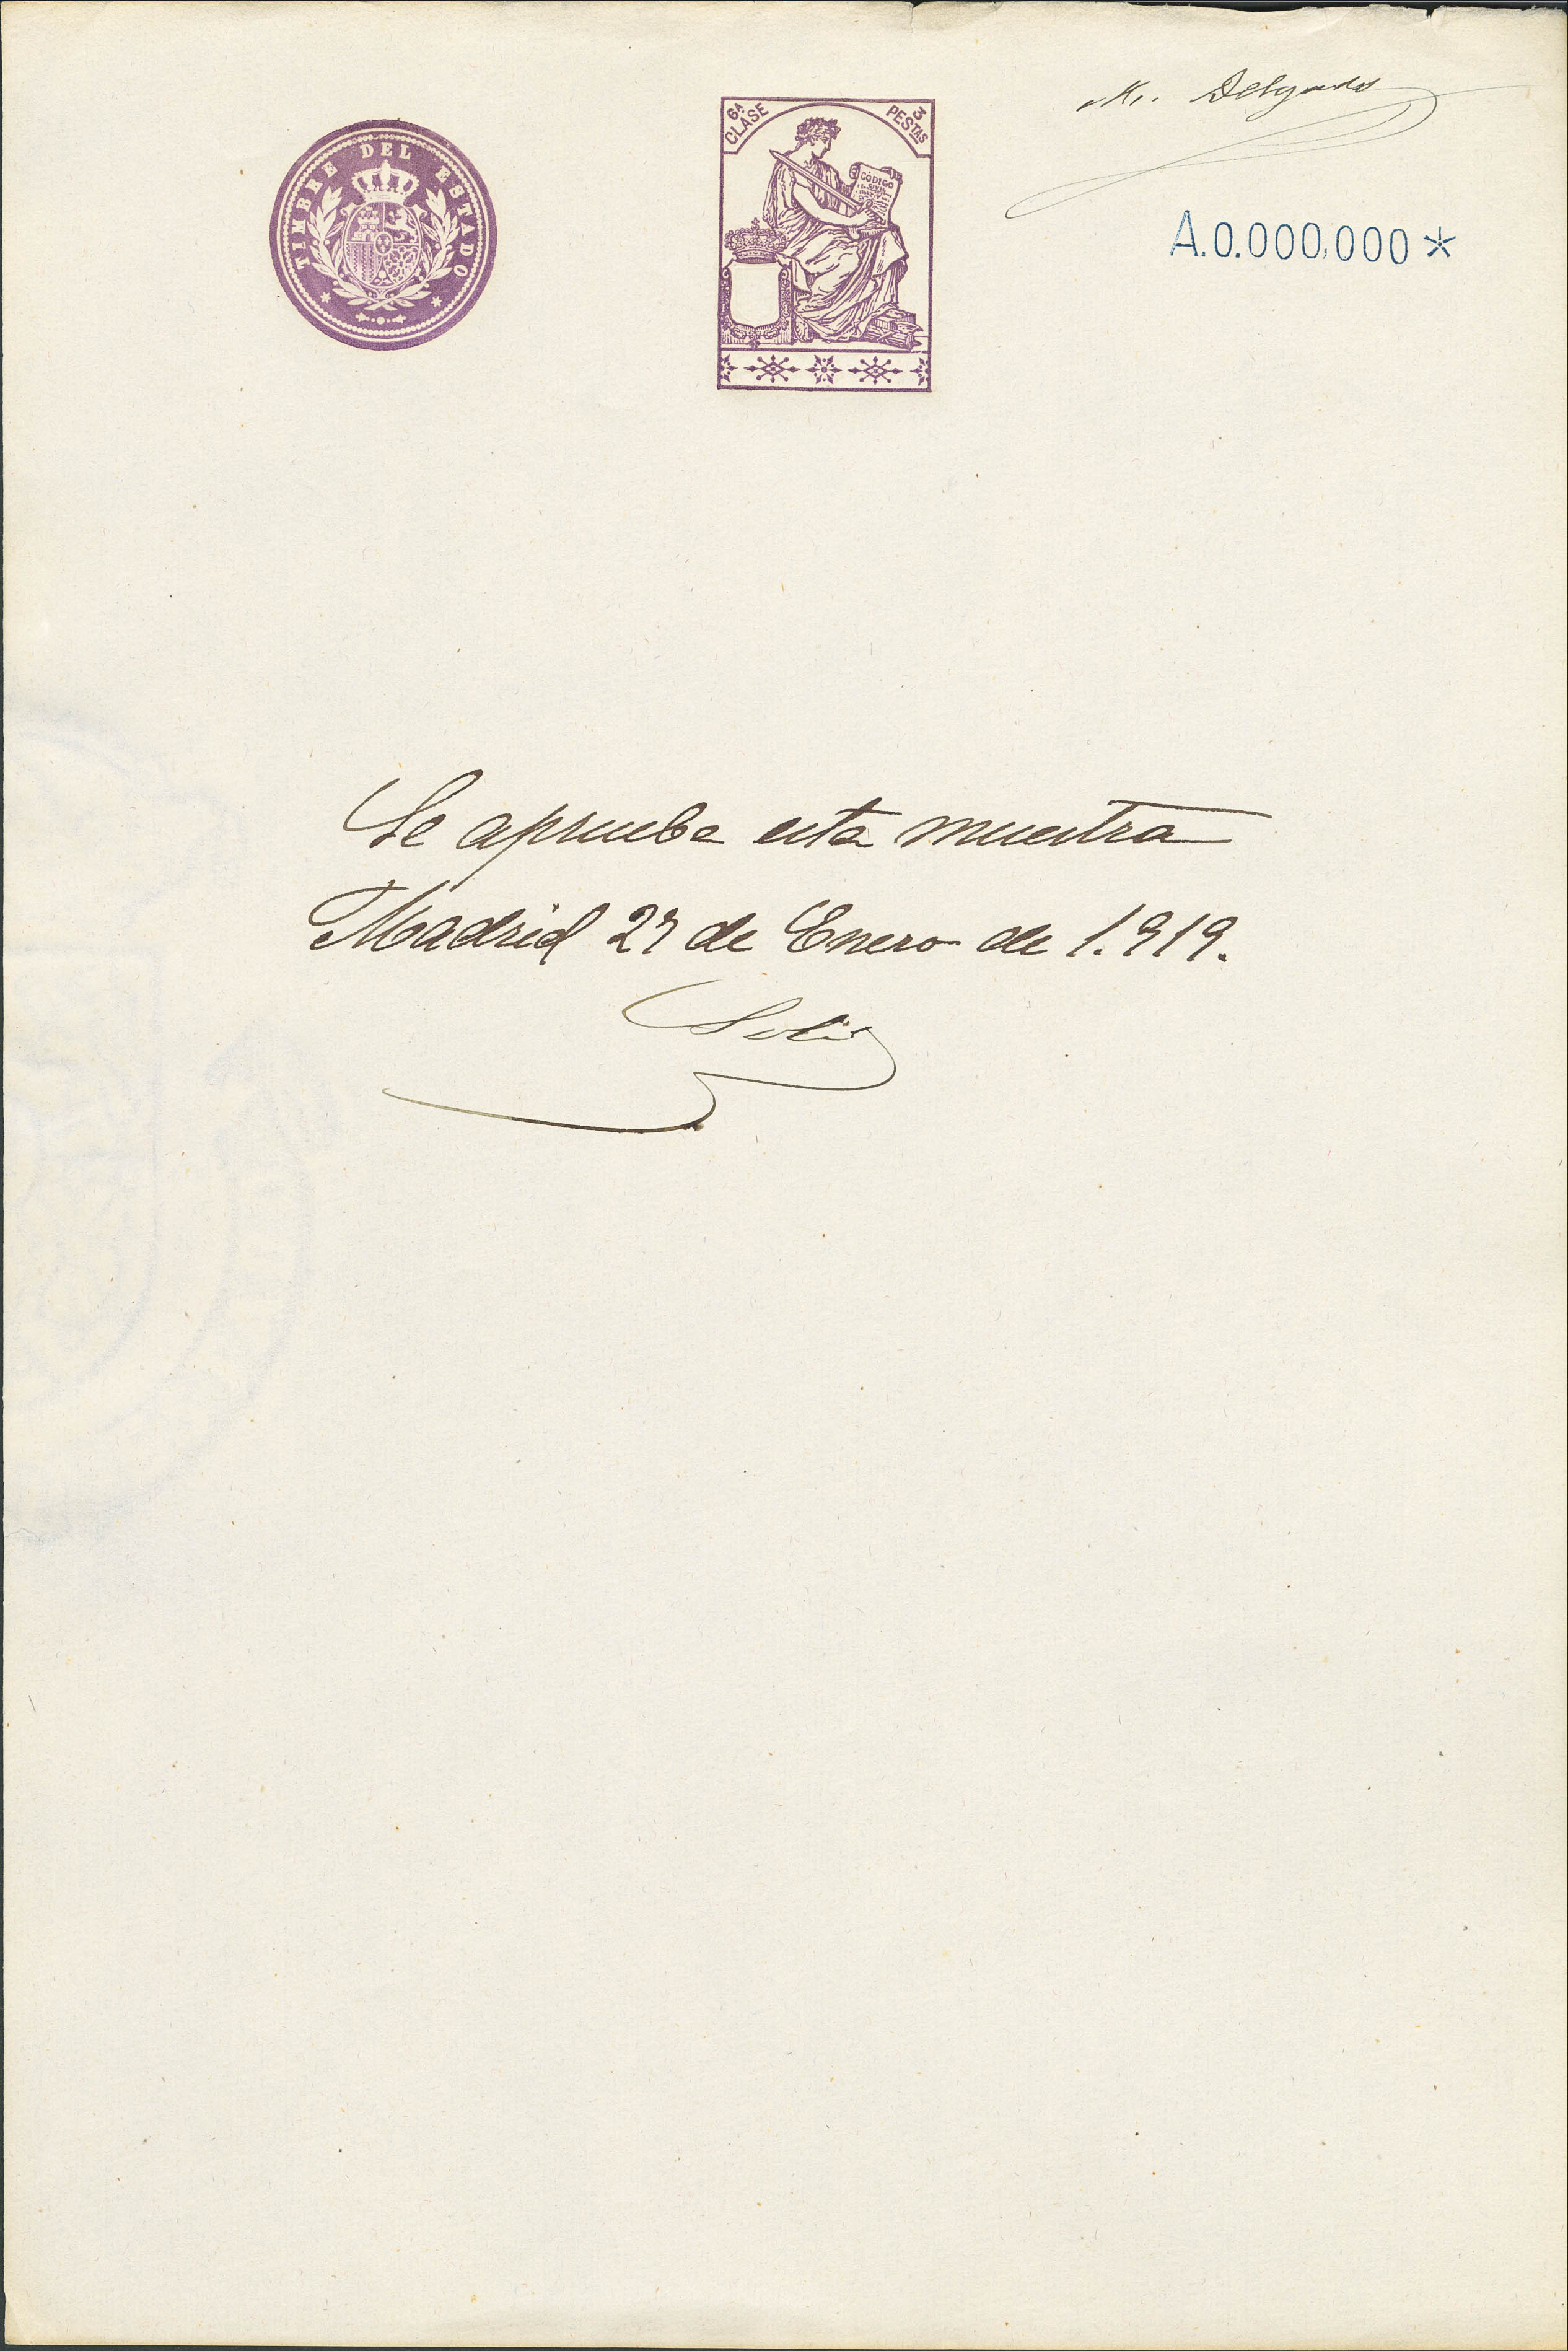 TIMBRE DEL ESTADO
6A CLASE
3 PESTAS
CÓDIGO
M. Delgado
A.0.000,000 *
Se aprueba esta muestra
Madrid 27 de Enero de 1.919.
Solis